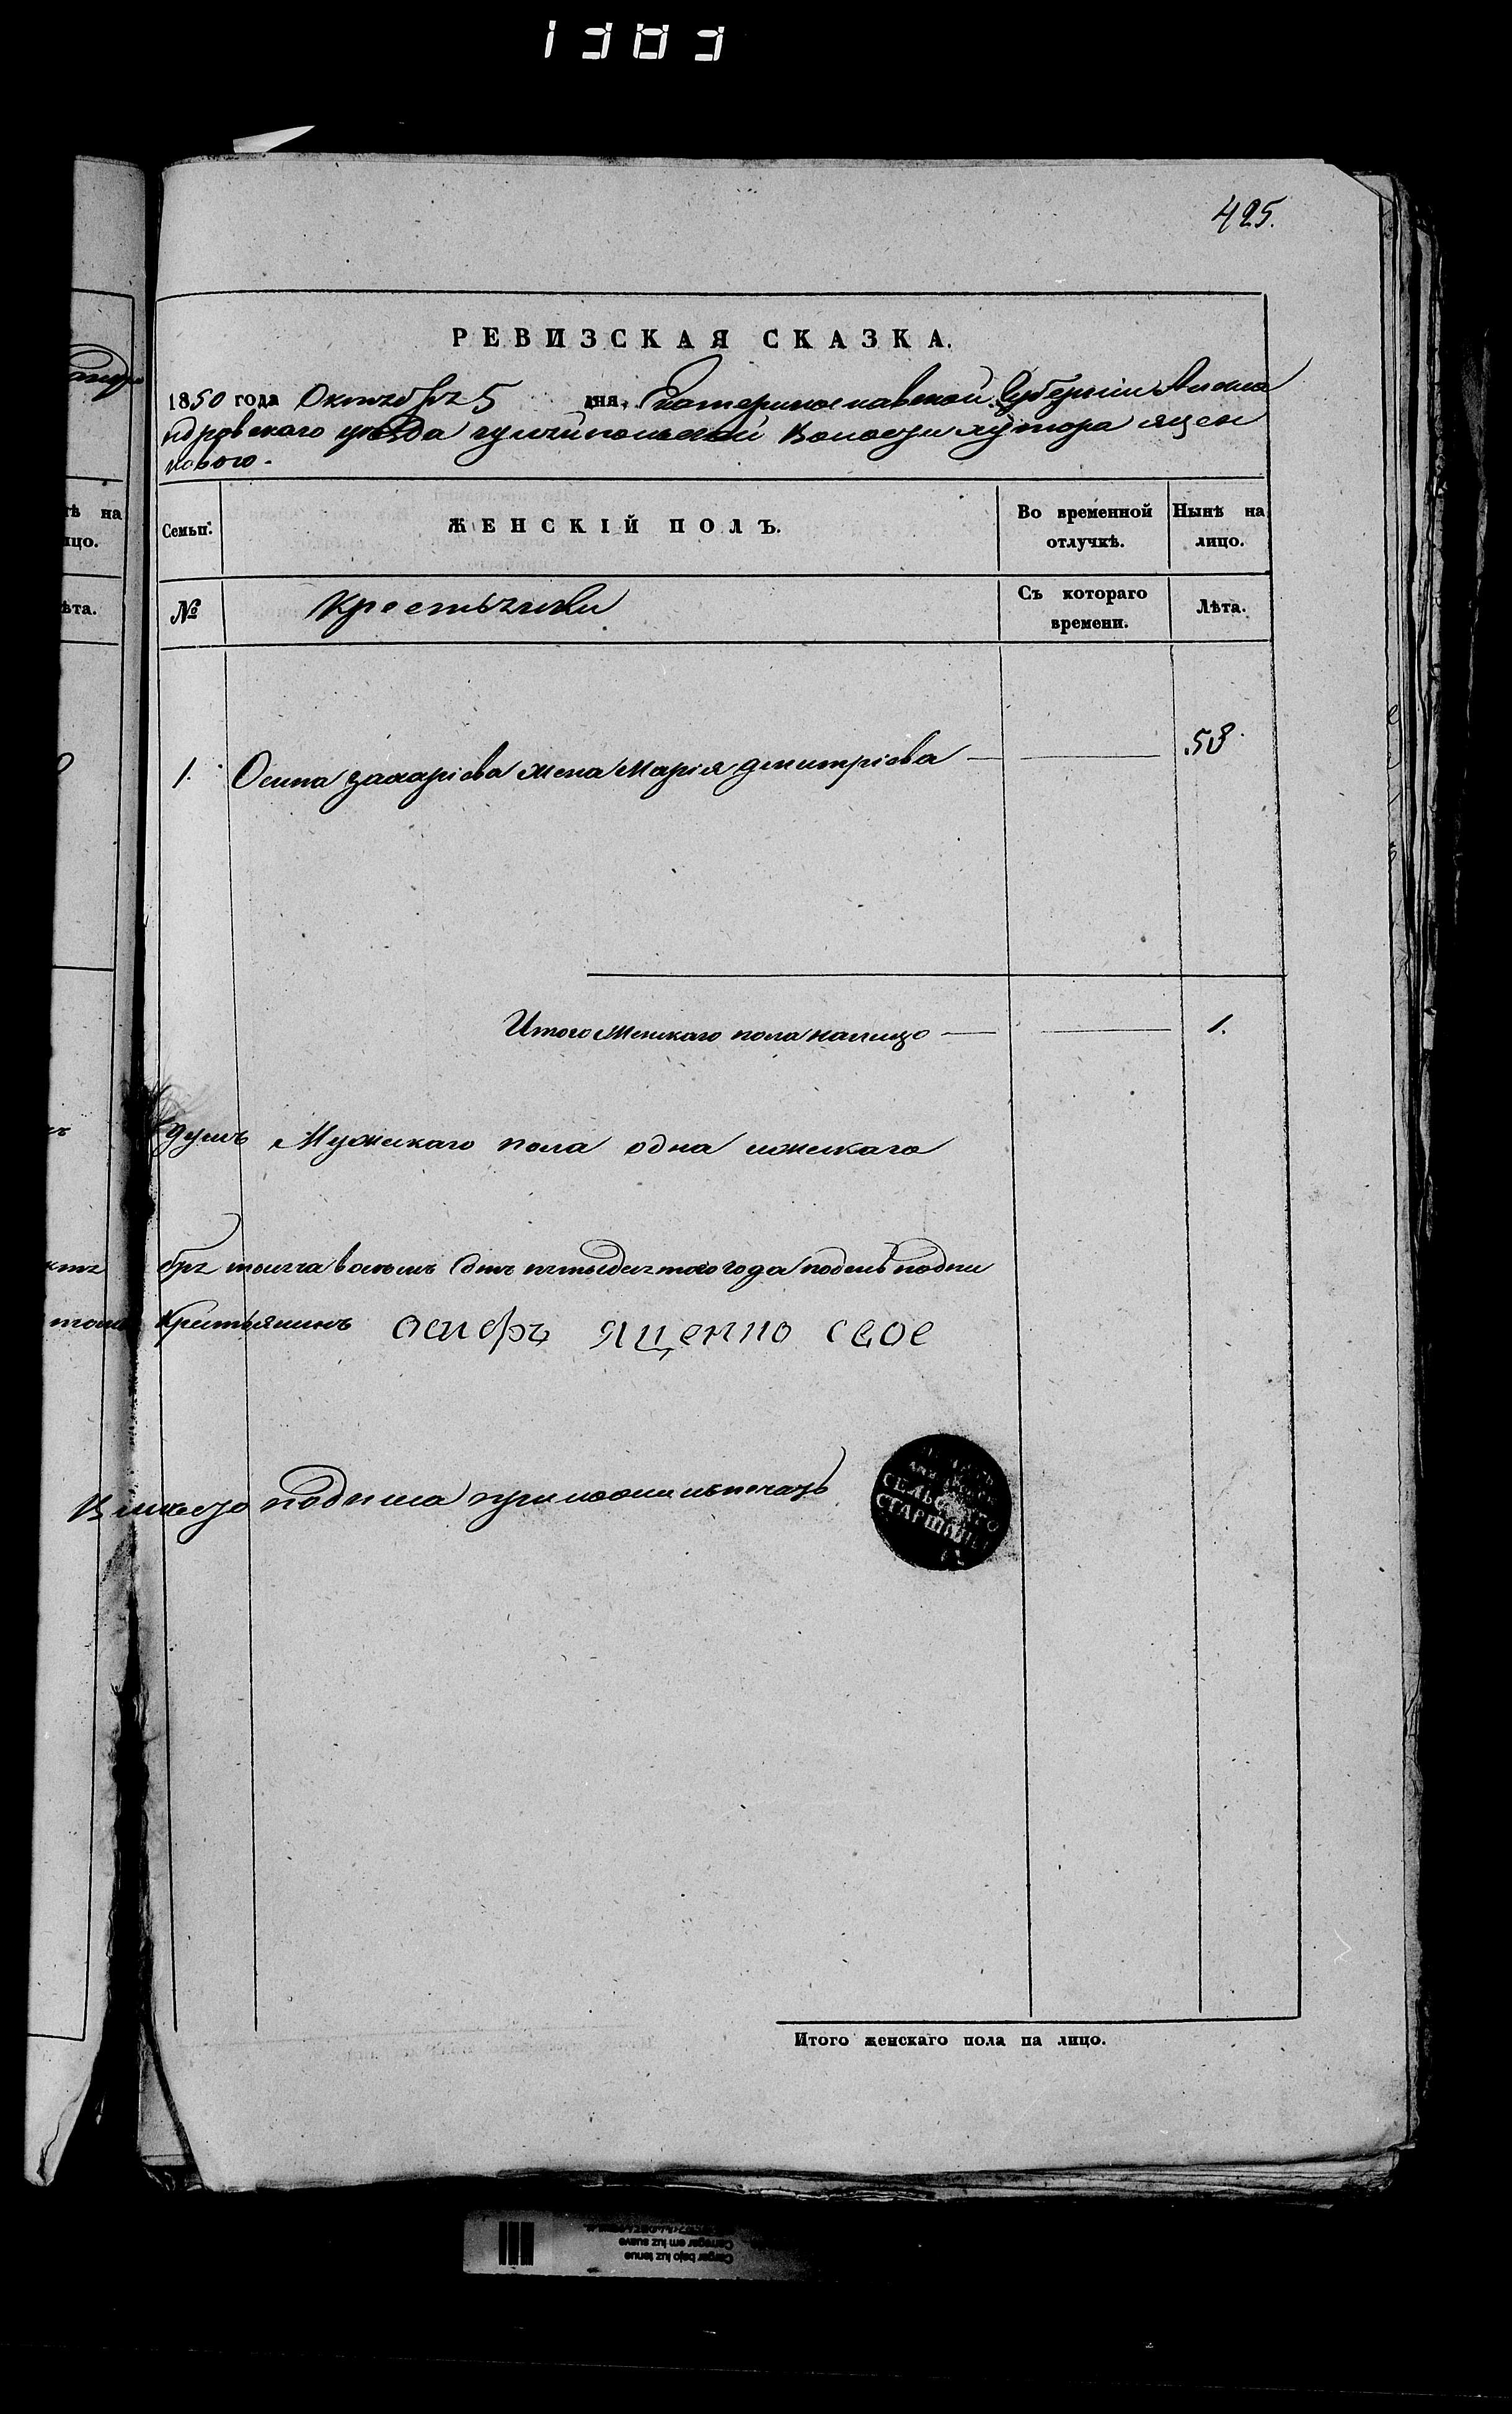 1383
425.
РЕВИЗСКАЯ СКАЗКА.
1850 года Октября 5 дня, Екатеринославской Губернии Алекса
ндровского уезда гуляйпольской Волости хутора ящен
кового.
Семьи. ЖЕНСКІЙ ПОЛЪ. Во временной отлучкѣ. Нынѣ на лицо.
№ Крестьянки Съ котораго времени. Лѣта.
1. Осипа захаріева жена Марія дмитріева — 53.
Итого женскаго пола налицо — 1.
душъ Мужскаго пола одна иженскаго
бря тысяча восемъ Сотъ пятьдесятого года подемъ подпи
Крестьянинъ осифъ ященко свое
подписа приложилъ печать
СЕЛЬСКАГО
СТАРШИНЫ
Итого женскаго пола на лицо.